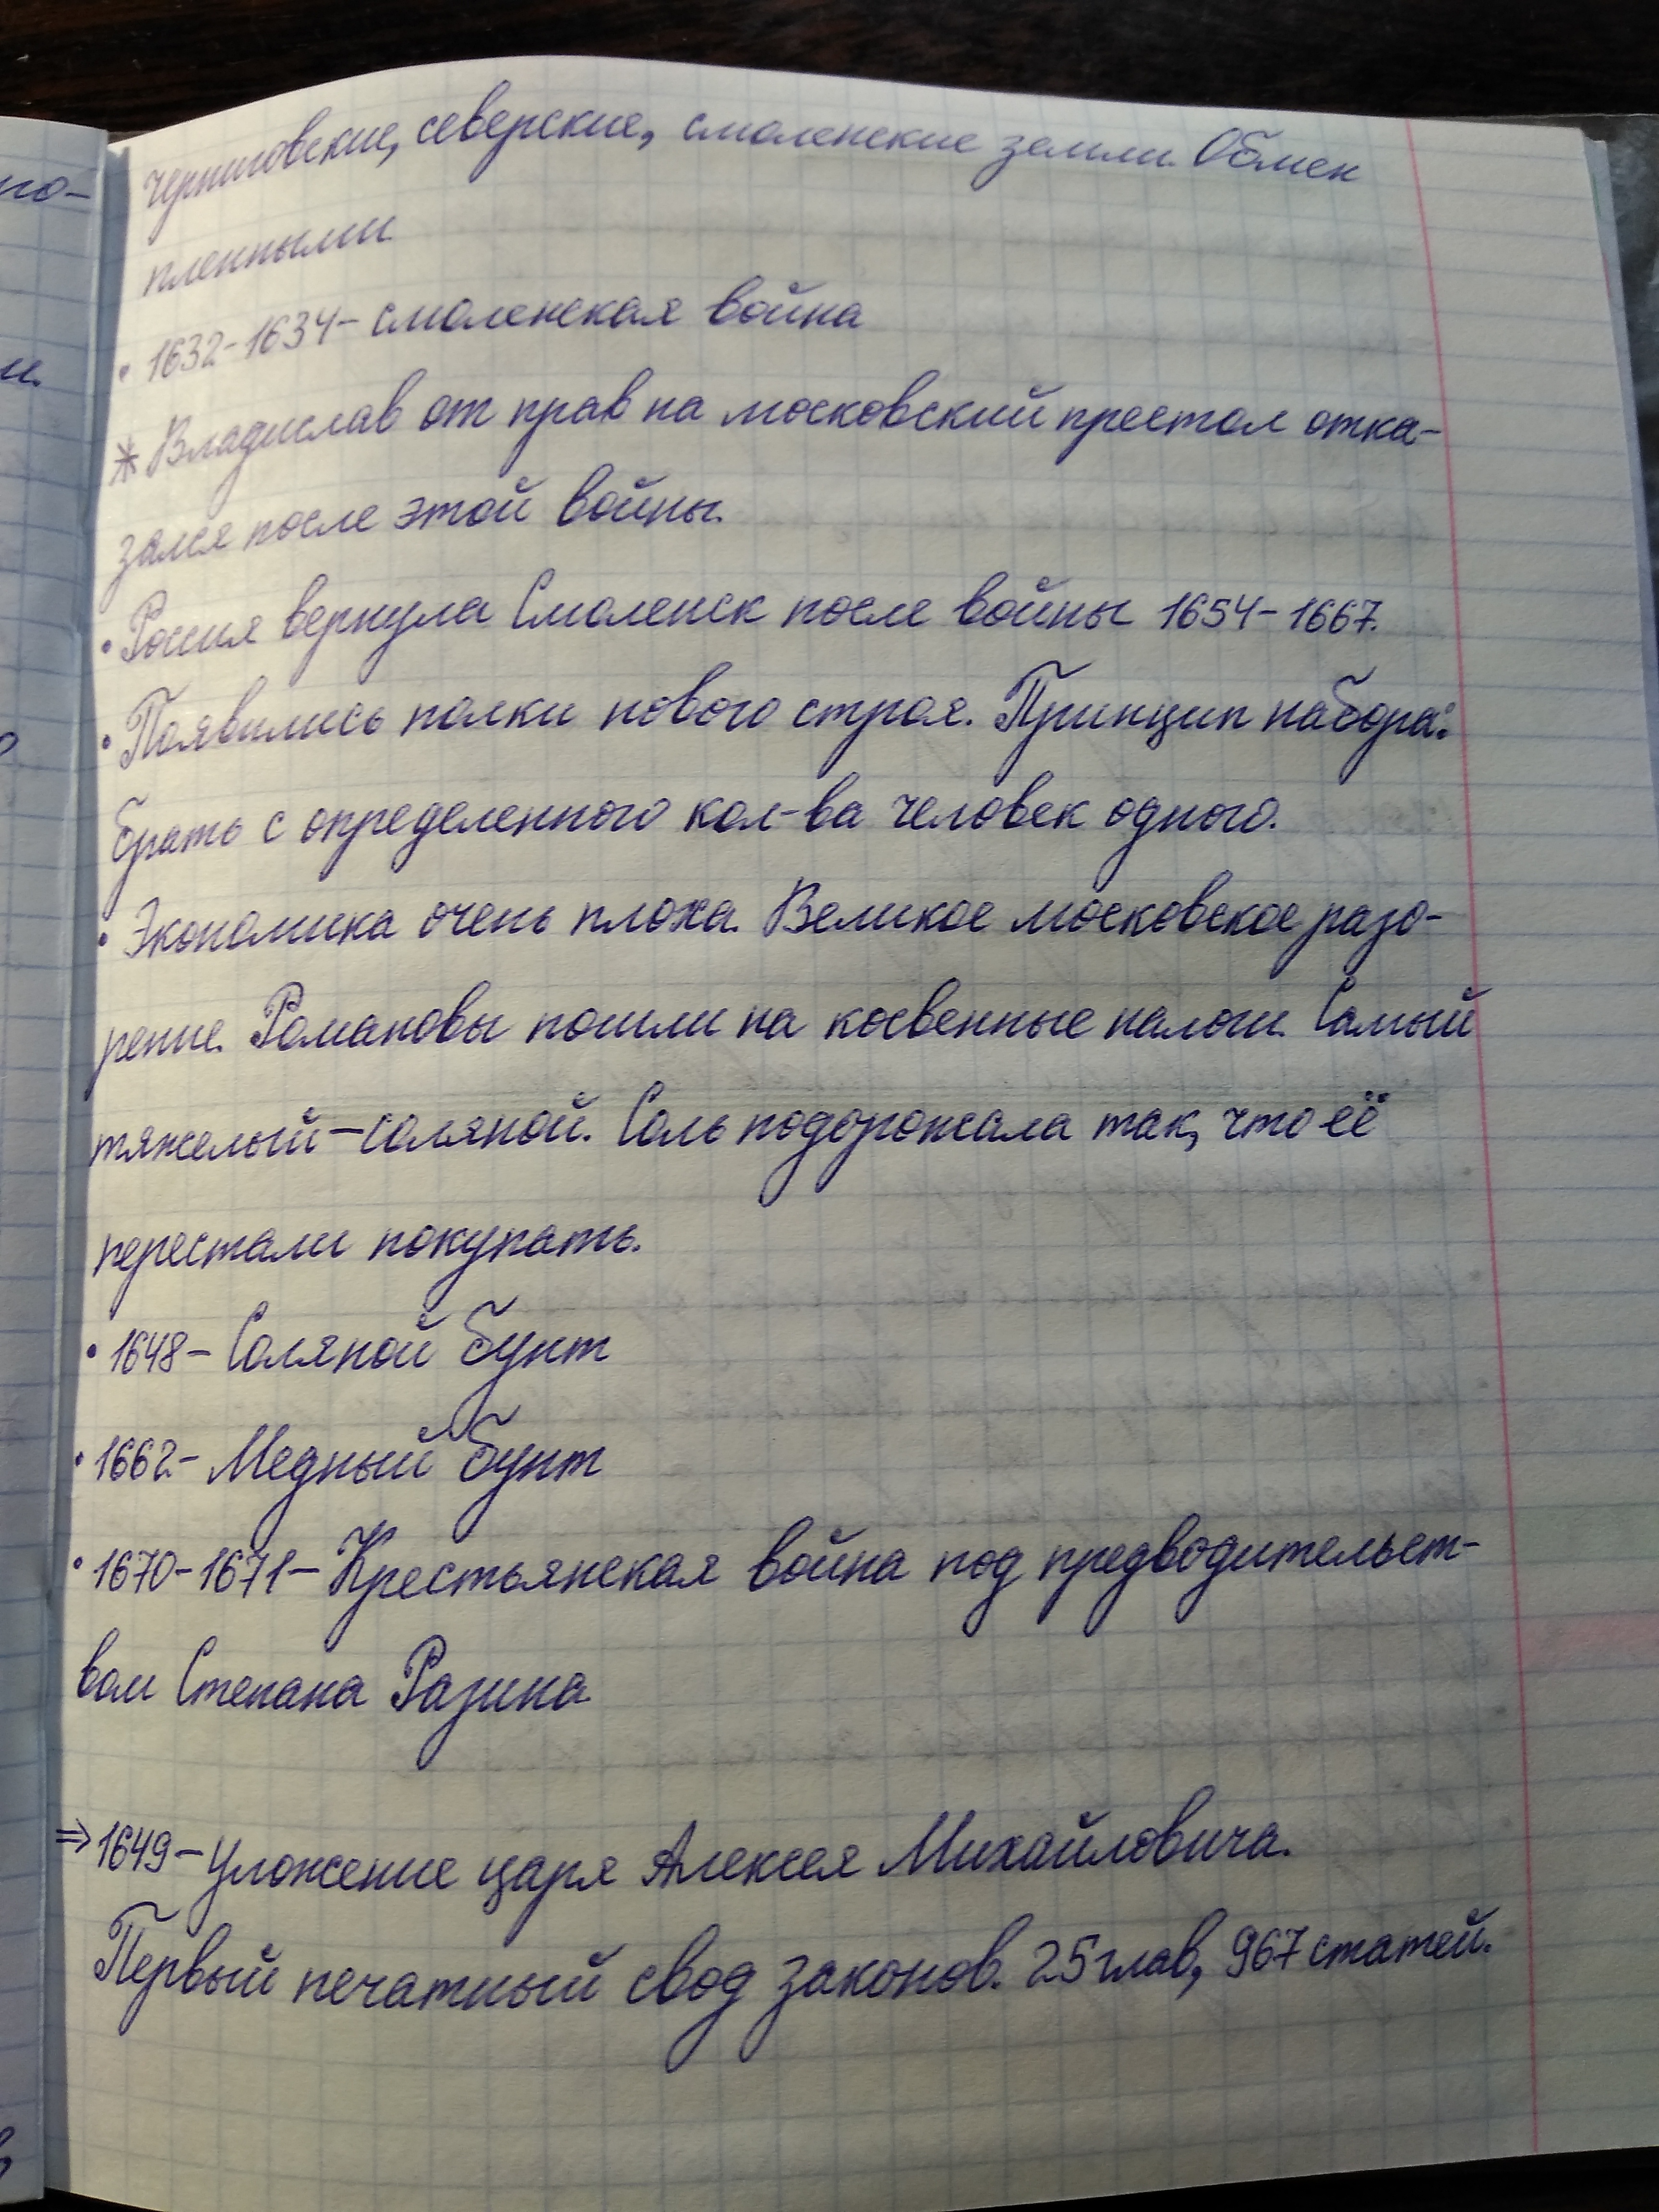 черниговские, северские, смоленские земли. Обмен
пленными.
• 1632-1634- смоленская война
* Владислав от прав на московский престол отка-
зался после этой войны.
• Россия вернула Смоленск после войны 1654-1667.
• Появились полки нового строя. Принцип набора:
брать с определенного кол-ва человек одного.
• Экономика очень плоха. Великое московское разо-
рение. Романовы пошли на косвенные налоги. Самый
тяжелый - соляной. Соль подорожала так, что её
перестали покупать.
• 1648- Соляной бунт
• 1662- Медный бунт
• 1670-1671- Крестьянская война под предводительст-
вом Степана Разина
⇒ 1649- Уложение царя Алексея Михайловича.
Первый печатный свод законов. 25 глав, 967 статей.